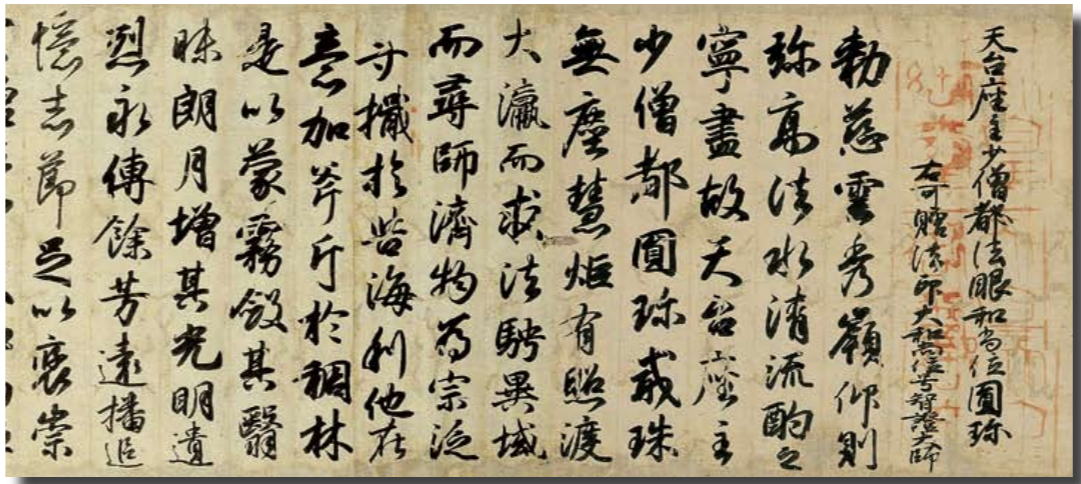 天台座主少僧都法眼和尚位圓珎
右可贈法印大和尚位号智證大師
勅慈雲秀嶺仰則
弥高法水清流酌之
寧盡故天台座主
少僧都圓珎戒珠
無塵慧炬有照渡
大瀛而求法騁異域
而尋師濟物為宗泛
寸檝於苦海利他在
意加斧斤於稠林
是以蒙霧斂其翳
昧朗月増其光明遺
烈永傳餘芳遠播追
憶志節足以褒崇